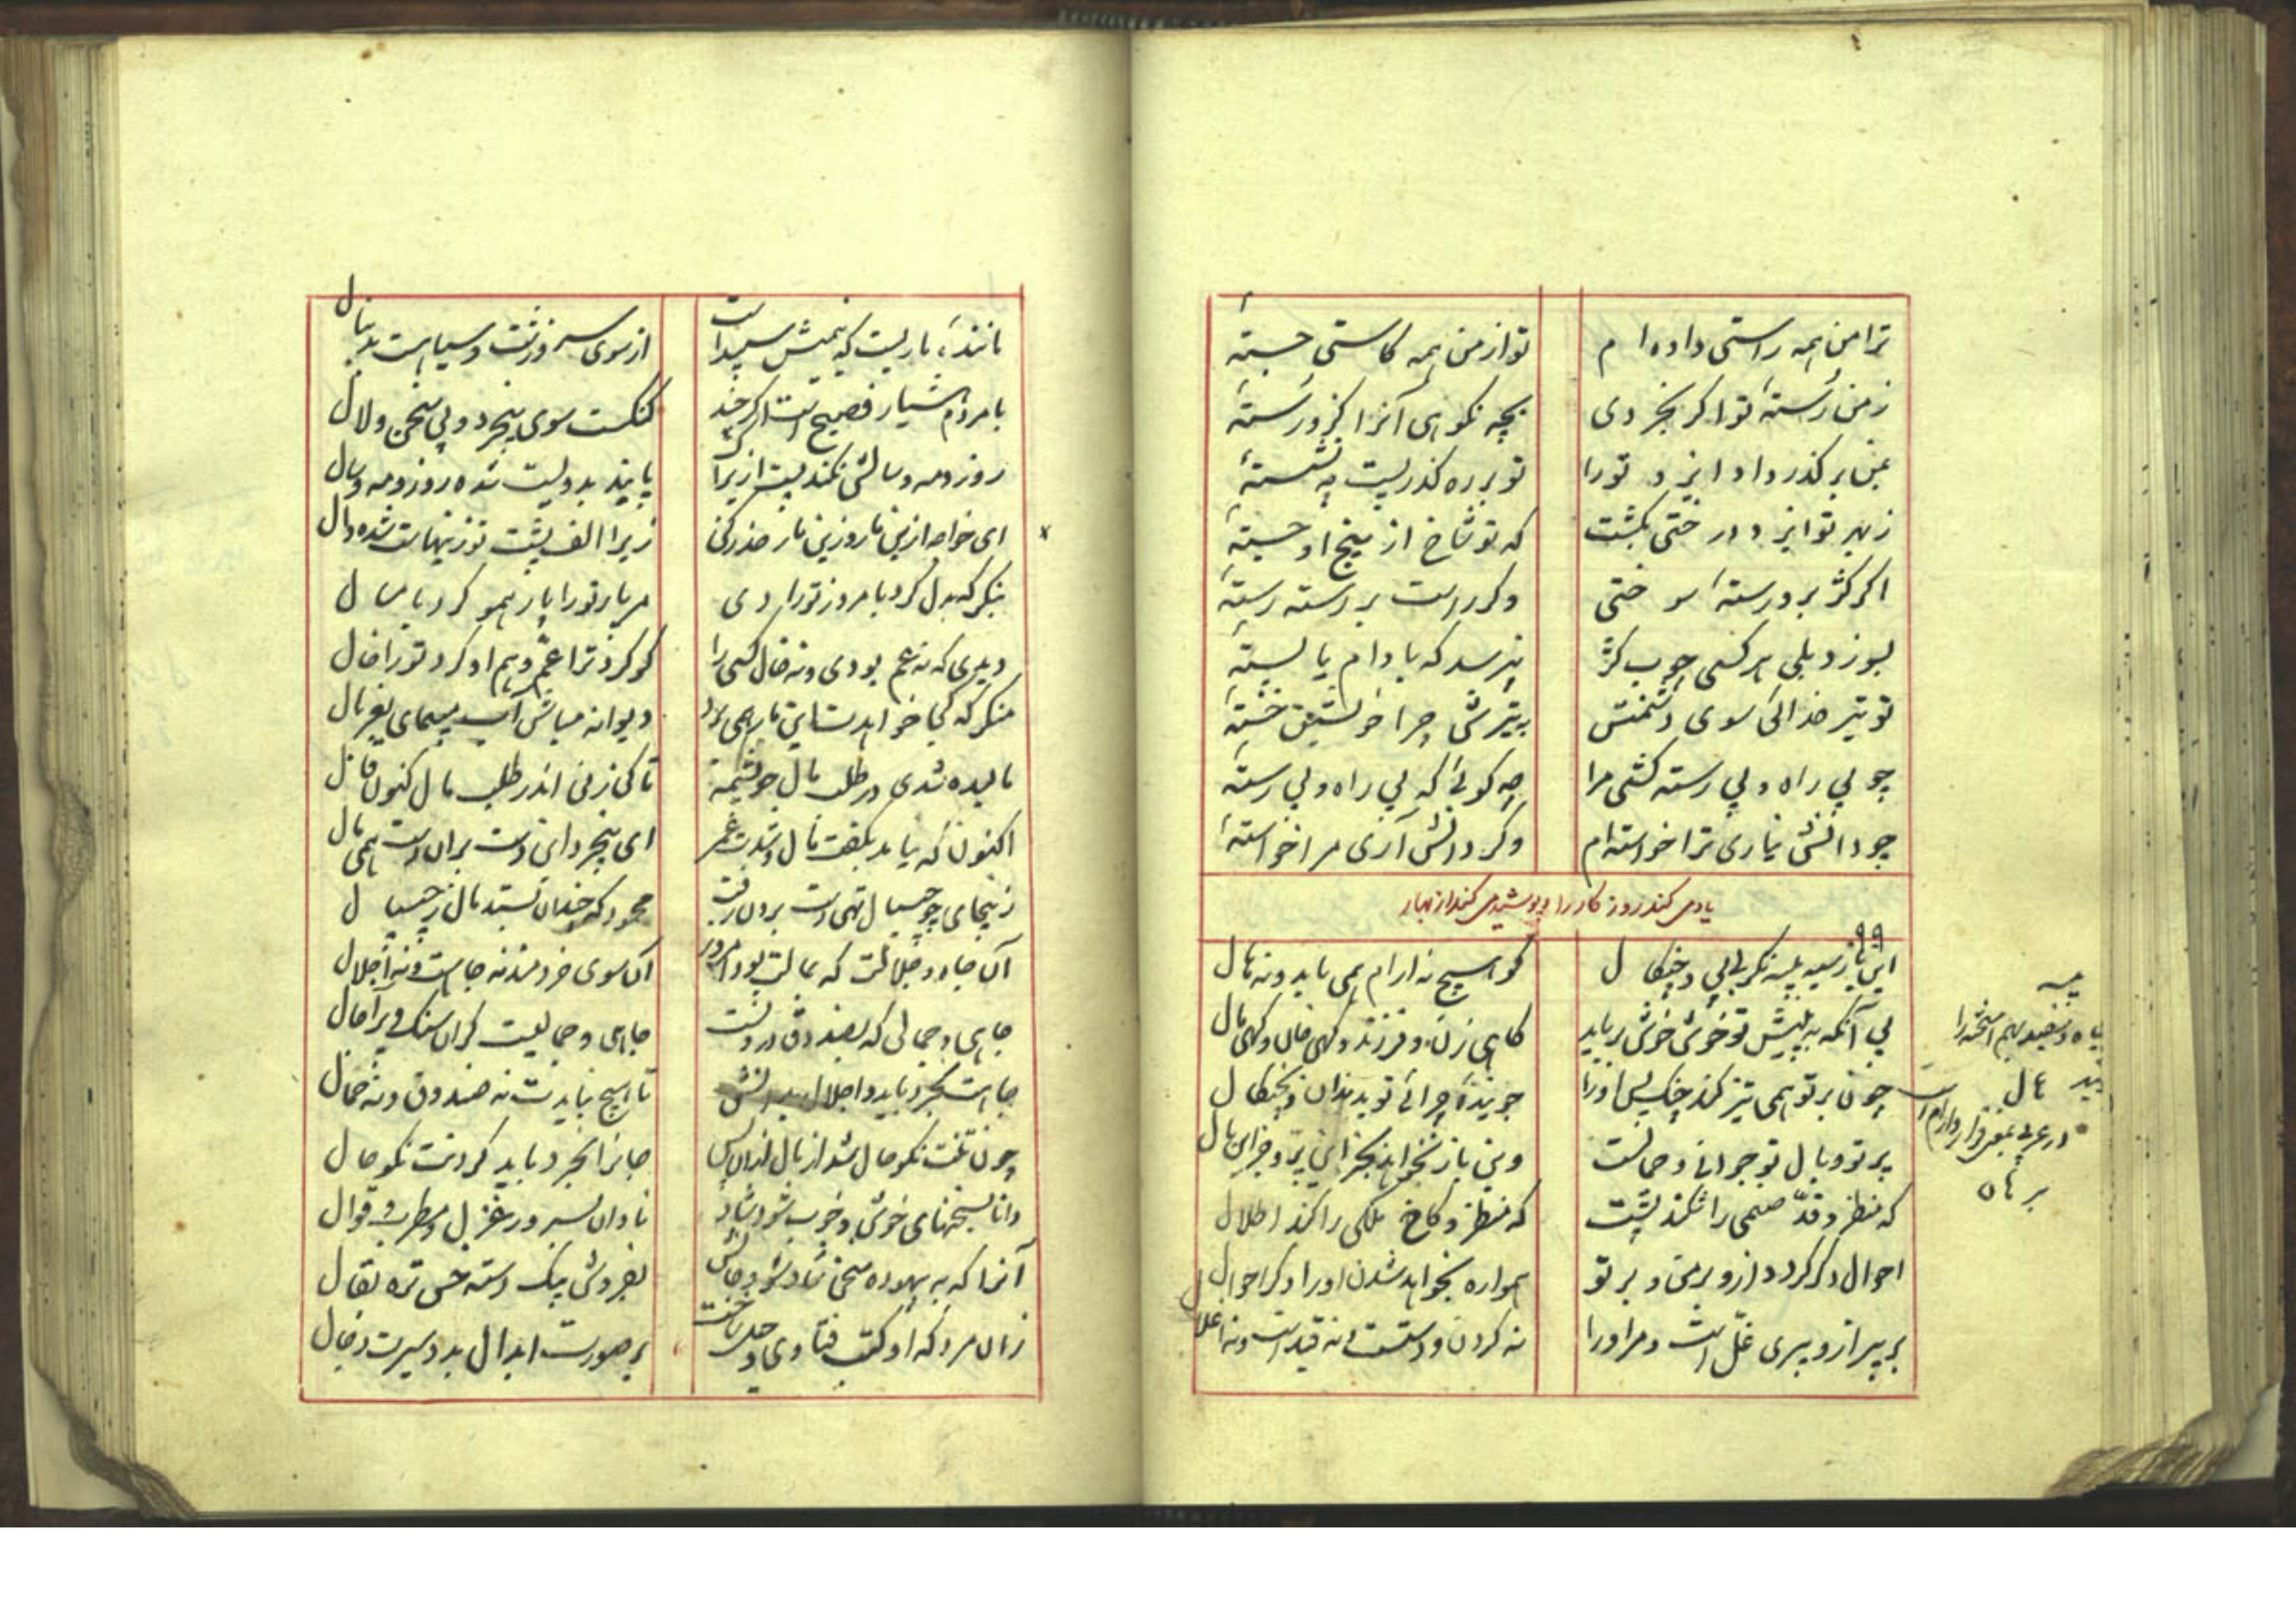 ترا من همه راستی داده‌ام تو از من همه کاستی جستهٔ
ز من رستهٔ تو اگر بخردی بچه نکوهی آنرا کزو رستهٔ
بمن بر گذر داد ایزد تو را تو بر ره گذر پست بنشستهٔ
ز بهر تو ایزد درختی بکشت که تو شاخ از بیخ او جستهٔ
اگر کژ برو رستهٔ سوختی وگر راست بر رستهٔ رستهٔ
بسوزد بلی هر کسی چوب کژ نپرسد که بادام یا پستهٔ
تو تیر خدائی سوی دشمنش به تیرش چرا خویشتن خستهٔ
چو بی راه و بی رسته کشتی مرا چه کوئی که بی راه و بی رستهٔ
چو دانش نیاری ترا خواسته‌ام وگر دانش آری مرا خواستهٔ
یاد می کند روزگار را
۹۹
این باز سیه پیسه نکر بی پر و چنکال کو هیچ نه ارام همی یابد و نه هال
بی آنکه به پیش تو خوش خوش برباید کاهی زن و فرزند و کهی خال و کهی مال
چون بر تو همی تیز کند چنک پس اورا جویندهٔ چرائی تو بدندان و بچنکال
پر تو و بال تو جوانی و جمالست وین باز نخواهد بجز این پر و جز این بال
که منظر و قد صنمی را شکند پشت که منظر و کاخ ملکی را کند اطلال
احوال دکر کردد ازو بر من و بر تو همواره نخواهد شدن اورا دکر احوال
بر پیر ازو پیری غل است و مر اورا نه کردن و دستست نه قیداست و نه اغلال
پیسه
سیاه و سفید بهم امیخته را
هال
در عربی بمعنی قرار و ارام است
برهان
مانندهٔ ماریست که نیمیش سپیدست از سوی سر و زشت و سیاهست بدنبال
با مردم هشیار فصیح است اکر چند کنکست سوی بیخرد و بی سخن و لال
روز و مه و سالش نکند پست ازیرا پاینده بدویست شده روز و مه و سال
ای خواجه ازین مار حذر کن زیرا الف پشت تو زینهاست شده دال
بنکر که بدل کرد بامروز تو را دی مر پار تو را پار همو کرد بامسال
دیدی که نه عم بودی و نه خال کسی را کو کرد ترا عم و هم او کرد تو را خال
منکر که کجا خواهدت این مار همی برد دیوانه مباش آب مپیمای بغربال
مالیده شدی در طلب مال تا کی زنی اندر طلب مال کنون فال
اکنون که نیامد بکفت مال و شدت عمر ای بیخرد این دست بران دست همی مال
زینجای چو چیپال تهی دست برون رفت محمود که چندان بستد مال ز چیپال
آن جاه و جلالت که بمالت بود امروز آن سوی خردمند نه جاهست و نه اجلال
جاهی و جمالی که بصندوق درونست جاهی و جمالیست کران سنک و پر آخال
جاهت بخرد باید و اجلال بدانش تا هیچ نبایدت نه صندوق و نه حمال
چون تنت نکو حال شد از مال ازان پس جانرا بخرد باید کردنت نکو حال
دانا بسخنهای خوش و خوب شود شاد نادان بسرود و غزل و مطرب و قوال
آنرا که به بیهوده سخن شاد شود جانش بفروش بیک دسته خس تره ببقال
زان مرد که او کتب فتاوی و حیل ساخت بر صورت ابدال بد و سیرت دجال